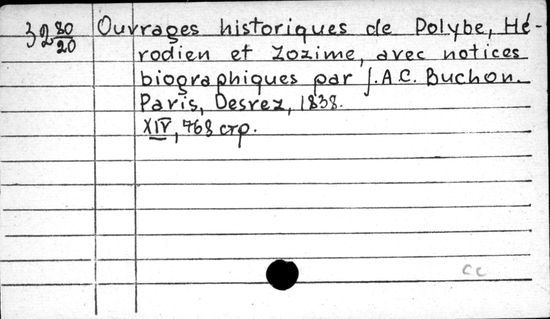 32 80/20 Ouvrages historiques de Polybe, Hé-
rodien et Zozime, avec notices
biographiques par J.A.C. Buchon.
Paris, Desrez, 1838.
XIV, 768 стр.
cc